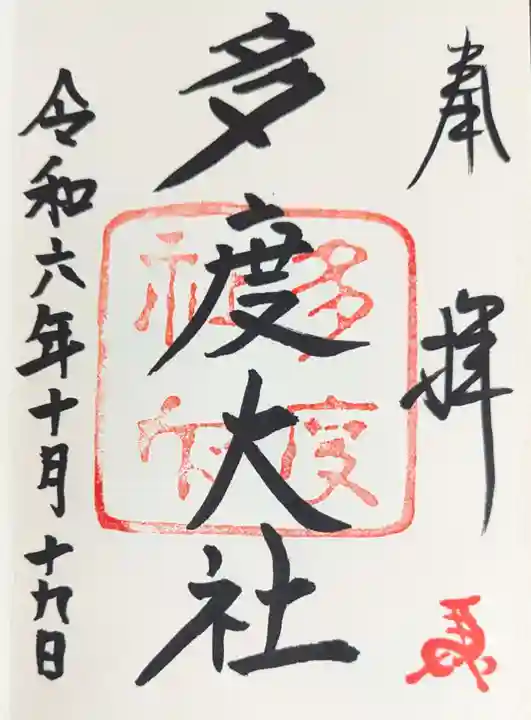 奉拝
多度大社
令和六年十月十九日
多度
社
馬